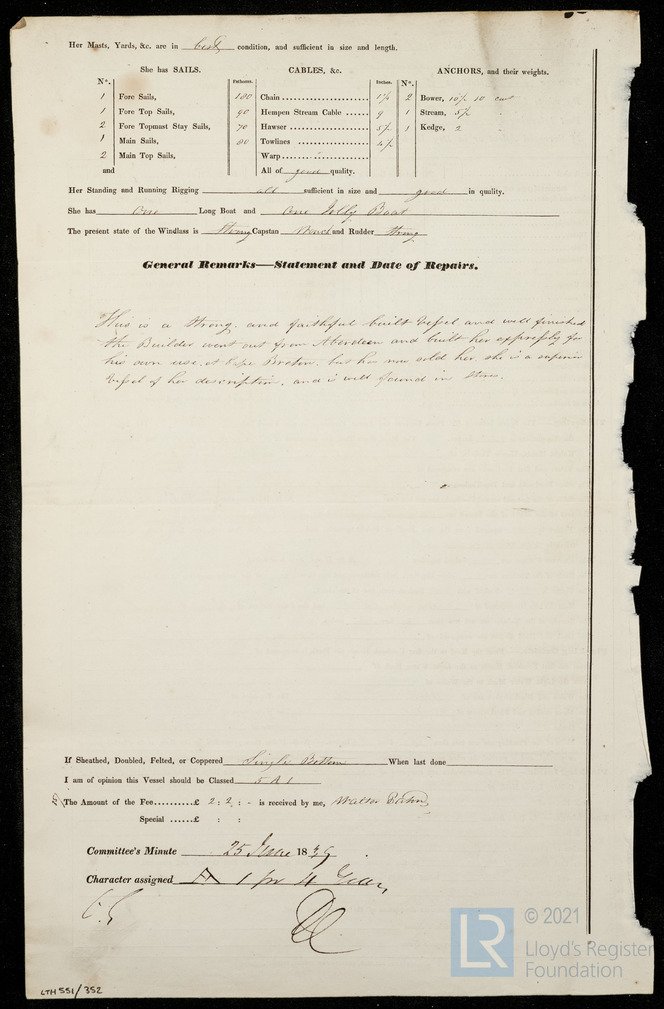 Her Masts, Yards, &c. are in best condition, and sufficient in size and length.
She has SAILS.
CABLES, &c.
ANCHORS, and their weights.
N°.
Fathoms.
Inches.
N°.
1 Fore Sails,
100 Chain
1 Fore Top Sails,
90 Hempen Stream Cable 9
2 Fore Topmast Stay Sails,
70 Hawser 5½
1 Main Sails,
80 Towlines 4½
2 Main Top Sails,
Warp
and
All of good quality.
2 Bower, 10½ 10 cwt
1 Stream, 3½
1 Kedge, 2
Her Standing and Running Rigging all sufficient in size and good in quality.
She has One Long Boat and One Jolly Boat
The present state of the Windlass is Strong Capstan and Rudder Strong
General Remarks—Statement and Date of Repairs.
This is a strong and faithful built Vessel and well finished
the Builder went out from Aberdeen and built her expressly for
his own use, at Cape Breton, but has now sold her, she is a superior
Vessel of her description, and is well found in Stores.
If Sheathed, Doubled, Felted, or Coppered Single Bottom When last done
I am of opinion this Vessel should be Classed 5 A 1
The Amount of the Fee £ 2 : 2 : - is received by me, Walter
Special £ : :
Committee's Minute 25 June 1839
Character assigned A 1 for 4 Years
LTH 551/352
LR
© 2021
Lloyd's Register
Foundation